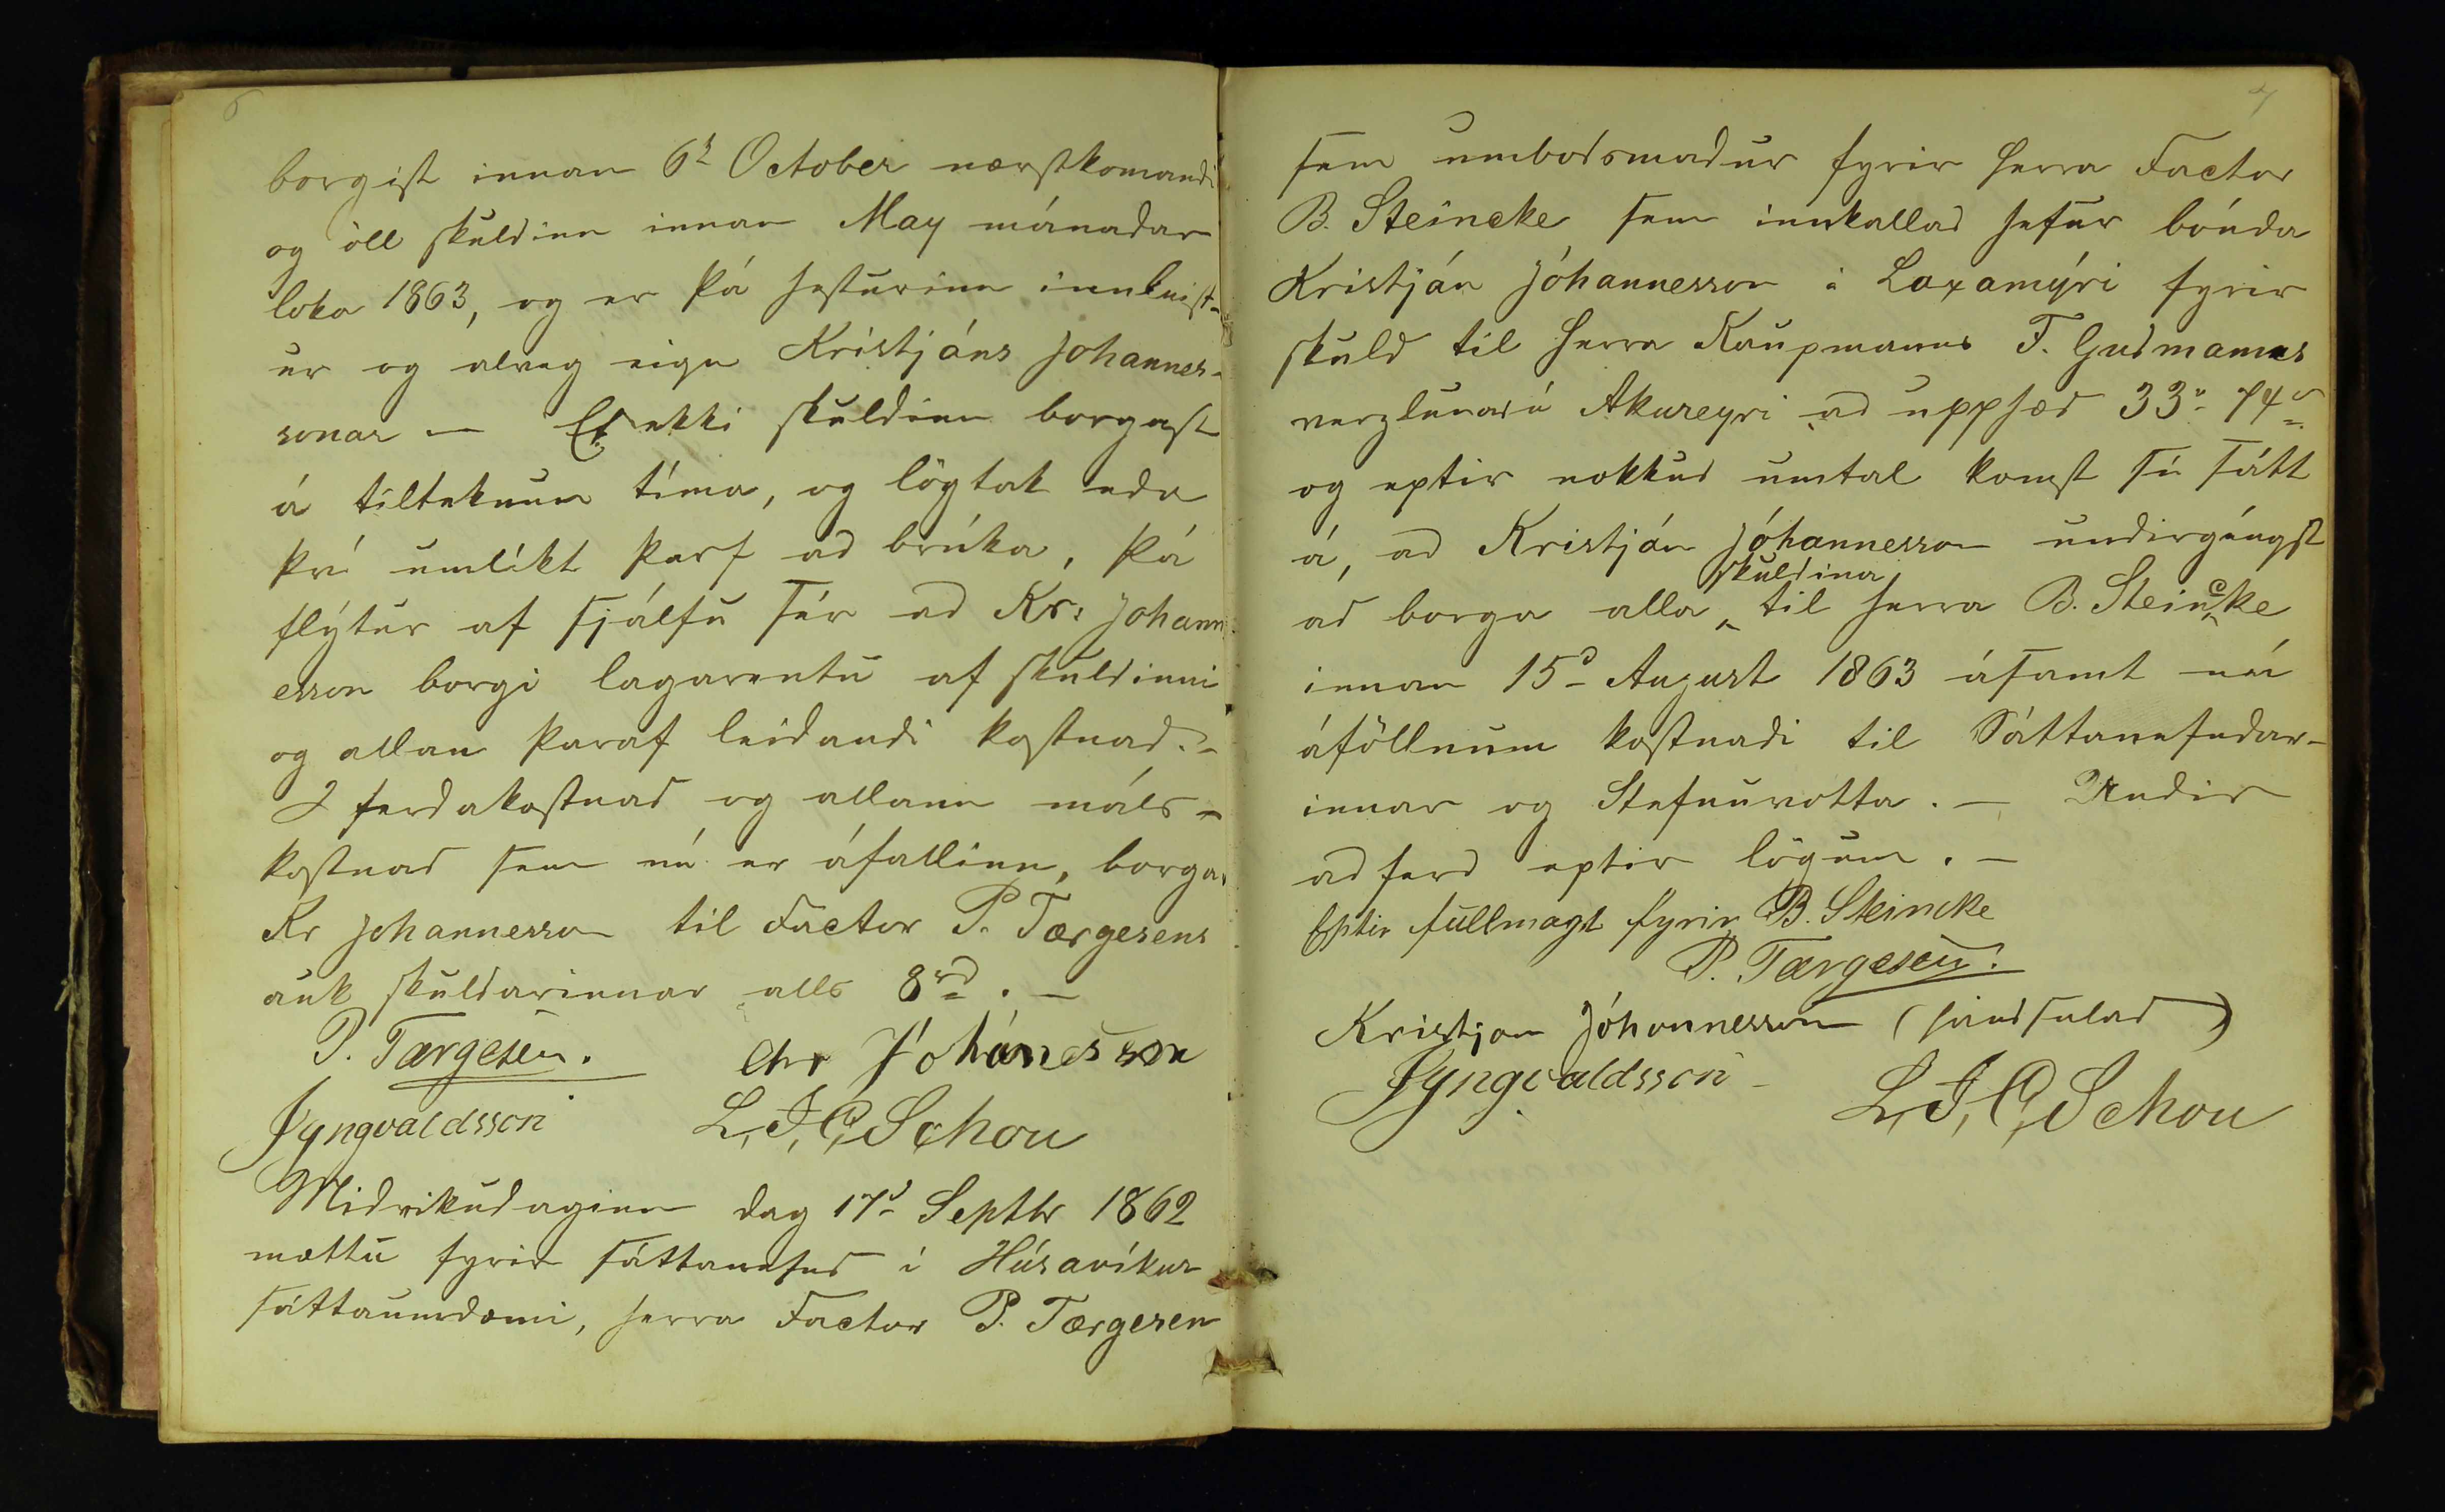 6
borgist innan 6t October næstkomandi
og öll skuldin innan May mánadar
loka 1863, og er þá hesturinn innleist-
ur og alveg eign Kristjáns Johannes-
sonar — Ef ekki skuldin borgast
á tilteknum tíma, og lögtak eda
því umlíkt þarf ad brúka, þá
flýtur af sjálfu sér ad Kr: Johann
esson borgi lagarentu af skuldinni
og allan þaraf leidandi kostnad. -
2 ferdakostnad og allann máls-
kostnad sem nú er áfallinn, borgar
Kr Johannesson til Factor P. Tærgesens
auk skuldarinnar alls 8rd. —
P. Tærgesen. Chr Jóhánesson
JYngvaldsson L. J. C. Schou
Midvikudaginn dag 17d Septbr 1862
mættu fyrir sáttanefnd í Húsavíkur
sáttaumdæmi, herra Factor P. Tærgesen
7
sem umbodsmadur fyrir herra Factor
B. Steincke, sem innkallad hefur bónda
Kristján Jóhannesson á Laxamýri fyrir
skuld til herra Kaupmanns F. Gudmanns
verzlunar á Akureyri ad upphæd 33r 74s
og eptir nokkud umtal komst sú sátt
á, ad Kristján Jóhannesson undirgéngst
ad borga alla skuldina til herra B. Steincke
innan 15d August 1863 ásamt nú
áföllnum kostnadi til Sáttanefndar-
innar og Stefnuvotta. — Undir
adferd eptir lögum. —
Eptir fullmagt fyrir B. Steincke
P. Tærgesen.
Kristjan Jóhannesson (handsalad)
JYngvaldsson - L. J. C. Schou